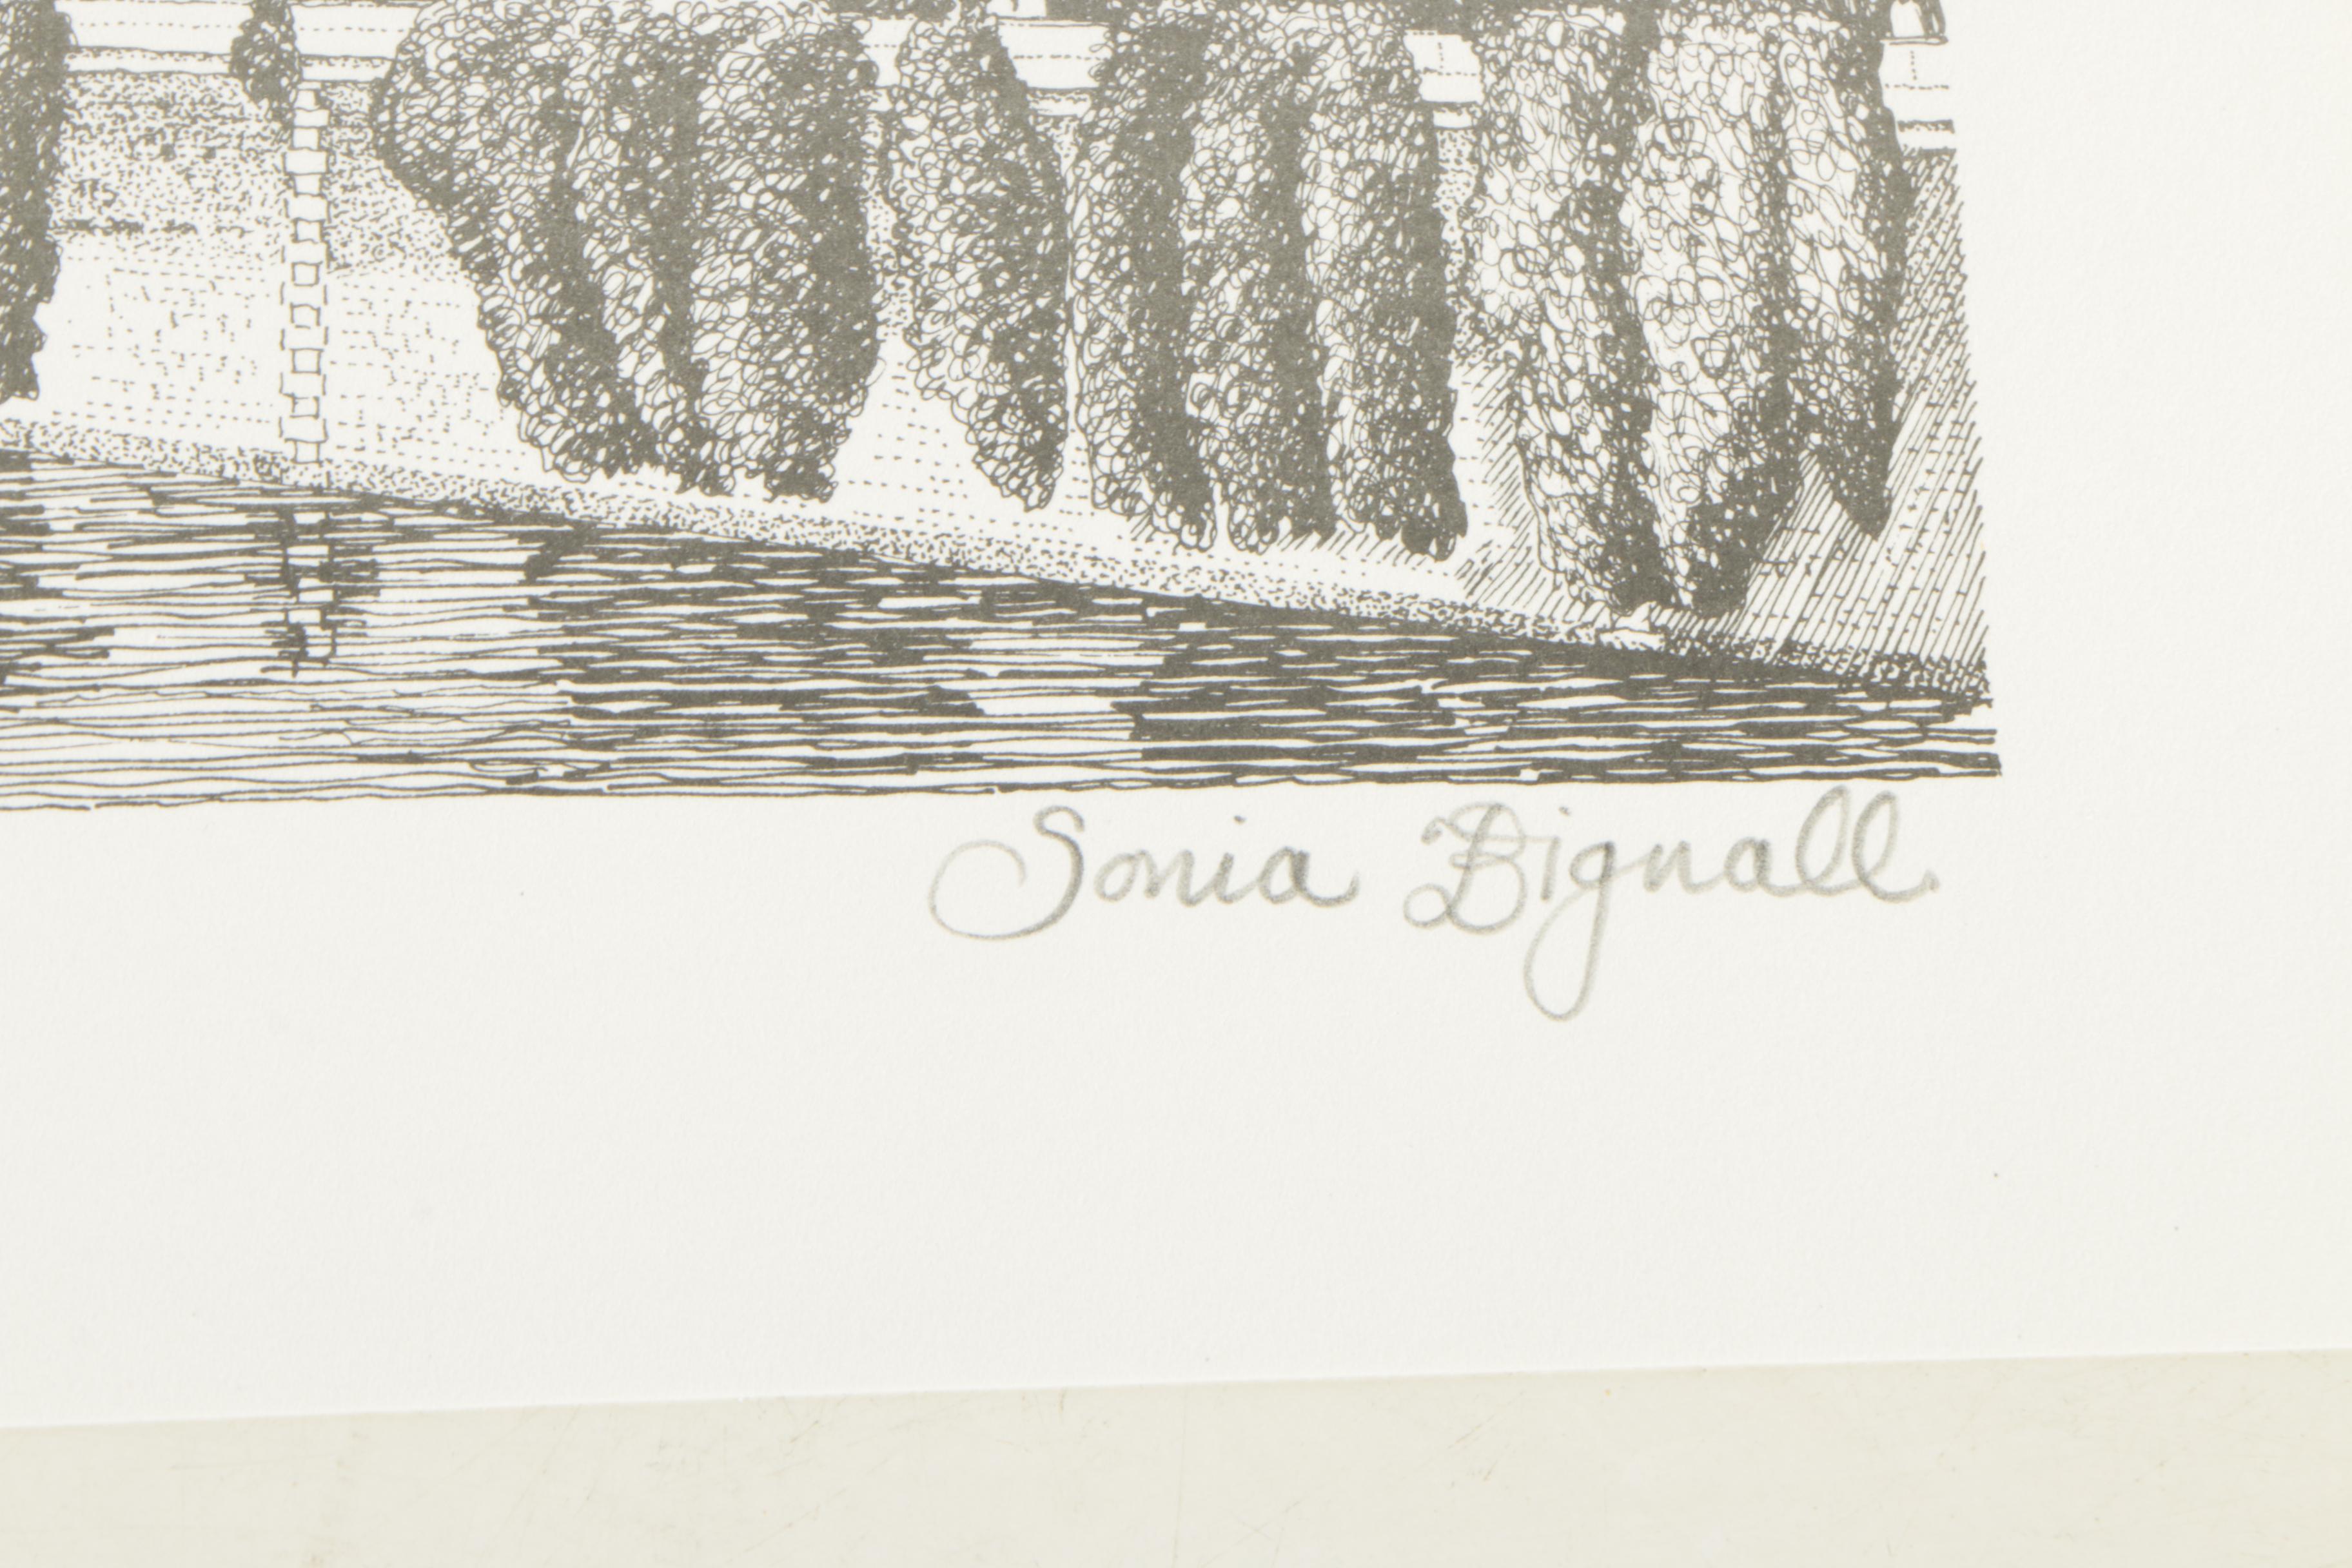 Sonia Bignall